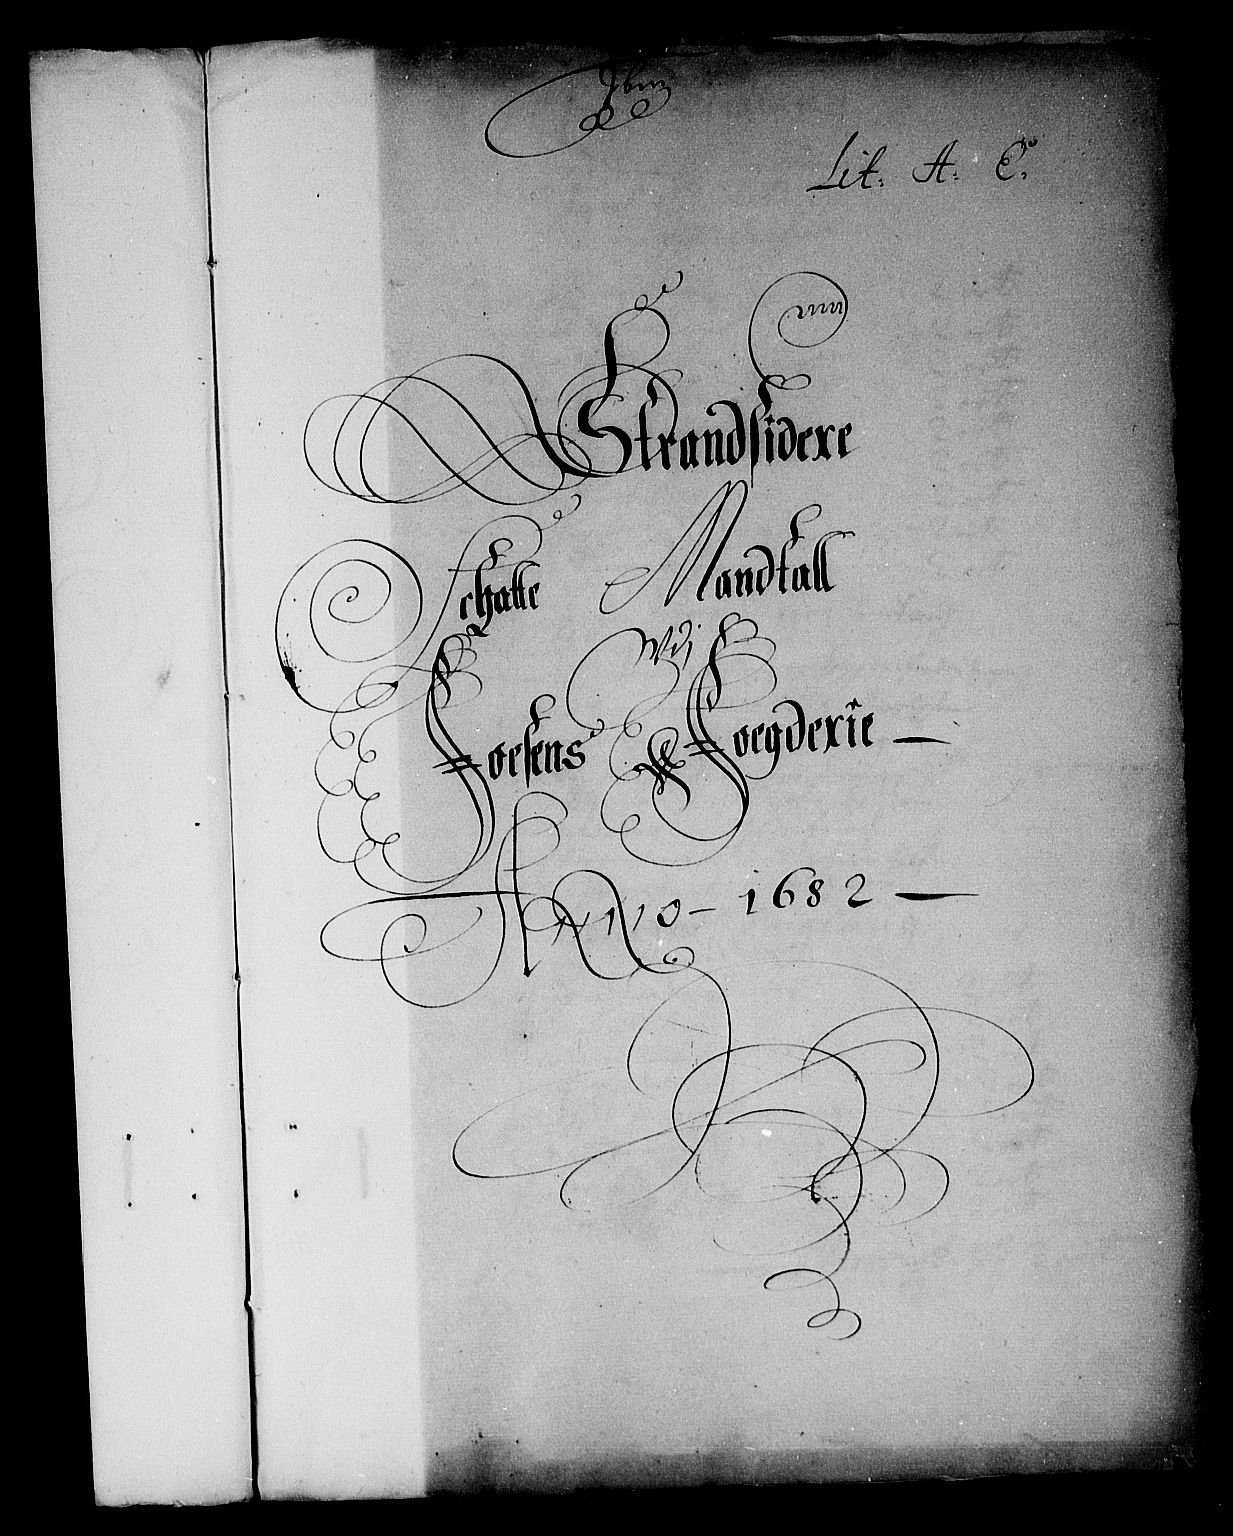 Lit. A. C.
Strandsidere
Schatte Mandtall
Wdj
Foesens Foegderie
ANNO 1682